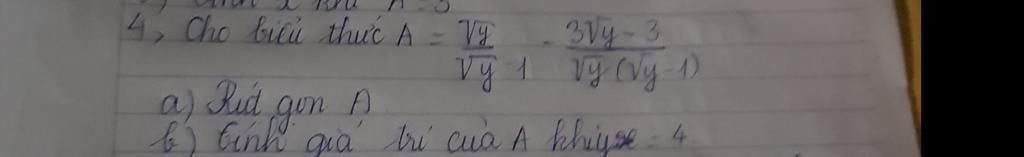 tính x khi A = 3
4, Cho biểu thức A = √y / (√y - 1) - (3√y - 3) / (√y (√y - 1))
a) Rút gọn A
b) Tính giá trị của A khi y = 4